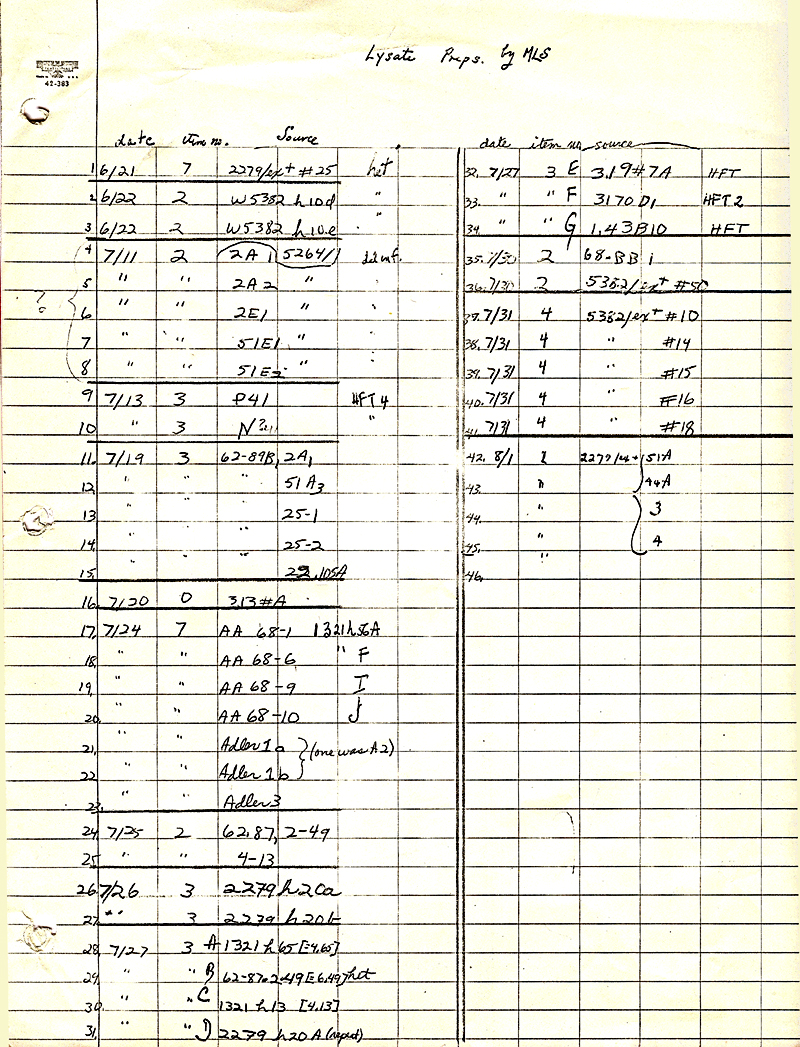 Lysate Preps. by MLS
42-383
date item no. Source
1 6/21 7 2279/ex+ #25 het
2 6/22 2 W5382 h10d "
3 6/22 2 W5382 h10e "
4 7/11 2 2A1 5264/1
5 " " 2A2 "
?
6 " " 2E1 "
7 " " 51E1 "
8 " " 51E2 "
9 7/13 3 P41 HFT4
10 " 3 "
11. 7/19 3 62-89B, 2A1
12 " " " 51A3
13 " " " 25-1
14. " " " 25-2
15. 22.105A
16. 7/20 0 313#A
17. 7/24 7 AA 68-1 1321h56A
18. " " AA 68-6 " F
19. " " AA 68-9 I
20. " " AA 68-10 J
21. " " Adler 1a (one was A2)
22 " " Adler 1b
23. " " Adler 3
24 7/25 2 62.87, 2-49
25 " " 4-13
26 7/26 3 2279 h20a
27. " 3 2279 h20b
28. 7/27 3 A 1321 h65 [-4.65]
29. " " B 62-87.2.49 [6.49] het
30. " " C 1321 h13 [4.13]
31. " " D 2279 h20A (repeat)
date item no. source
32. 7/27 3 E 319#7A HFT
33. " " F 3170 D1 HFT2
34. " G 1.43B10 HFT
35. 7/30 2 68-BB 1
36. 7/30 2 5382/ex+ #50
37. 7/31 4 5382/ex+ #10
38. 7/31 4 " #14
39. 7/31 4 " #15
40. 7/31 4 " #16
41. 7/31 4 " #18
42. 8/1 1 51A
43. " 44A
44. " 3
45. " 4
46. "